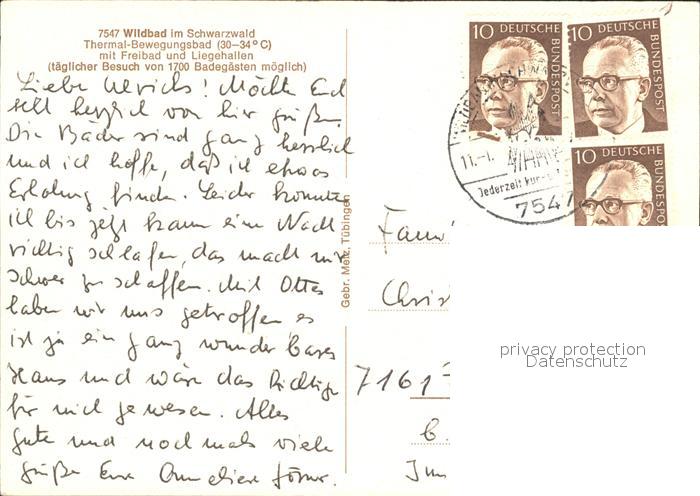 7547 Wildbad im Schwarzwald
Thermal-Bewegungsbad (30–34° C)
mit Freibad und Liegehallen
(täglicher Besuch von 1700 Badegästen möglich)
Liebe Ulrichs! Möchte Euch
sehr herzlich von hier grüßen.
Die Bäder sind ganz herrlich
und ich hoffe, daß ich etwas
Erholung finde. Leider konnte
ich bis jetzt kaum eine Nacht
richtig schlafen, das macht mir
schwer zu schaffen. Mit Ottos
haben wir uns getroffen es
ist ja ein ganz wunderbares
Haus und wäre das Richtige
für mich gewesen. Alles
Gute und nochmals viele
Grüße Eure
Gebr. Metz, Tübingen
10 DEUTSCHE BUNDESPOST
10 DEUTSCHE BUNDESPOST
10 DEUTSCHE BUNDESPOST
11.-1.
Jederzeit
7547
Fam
Christ
7161
b.
privacy protection
Datenschutz